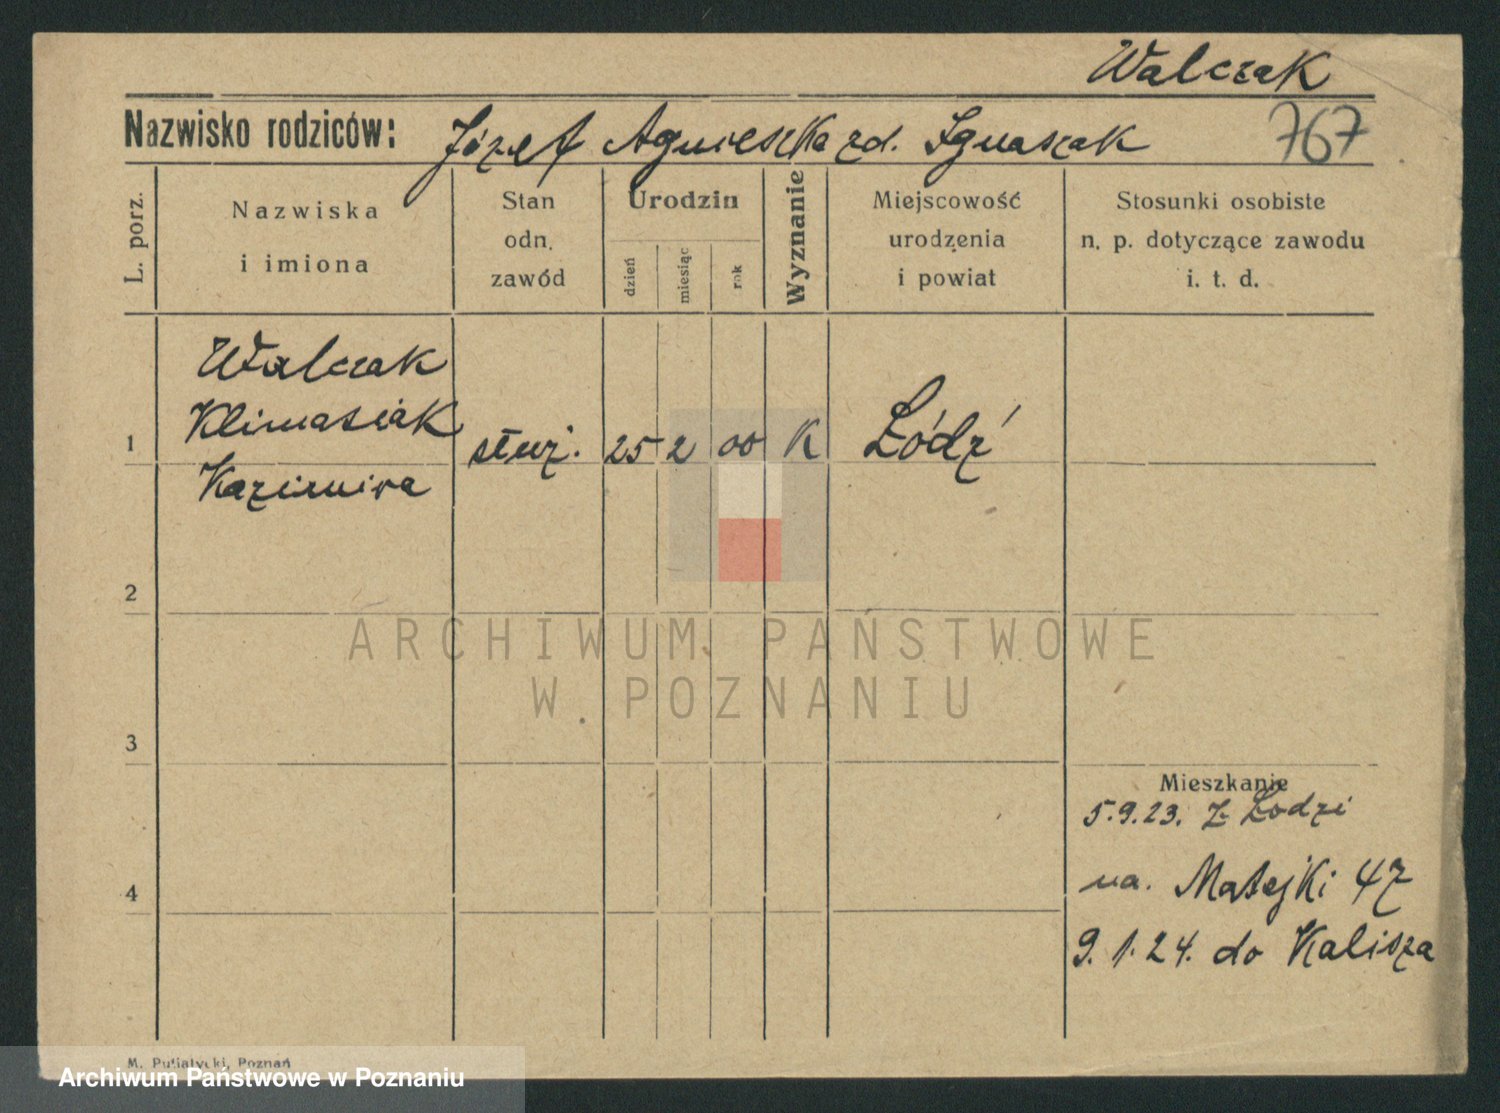 Walczak
Nazwisko rodziców: Józef Agnieszka zd. Ignaszak 767
L. porz.
Nazwiska
i imiona
Stan
odn.
zawód
Urodzin
dzień
miesiąc
rok
Wyznanie
Miejscowość
urodzenia
i powiat
Stosunki osobiste
n. p. dotyczące zawodu
i. t. d.
Walczak
Klimasiak
1 służ. 25 2 00 K Łódź
Kazimira
2
ARCHIWUM PAŃSTWOWE
W POZNANIU
3
Mieszkanie
5.9.23. z Łodzi
4 na. Matejki 47
9.1.24. do Kalisza
M. Putiatycki, Poznań
Archiwum Państwowe w Poznaniu